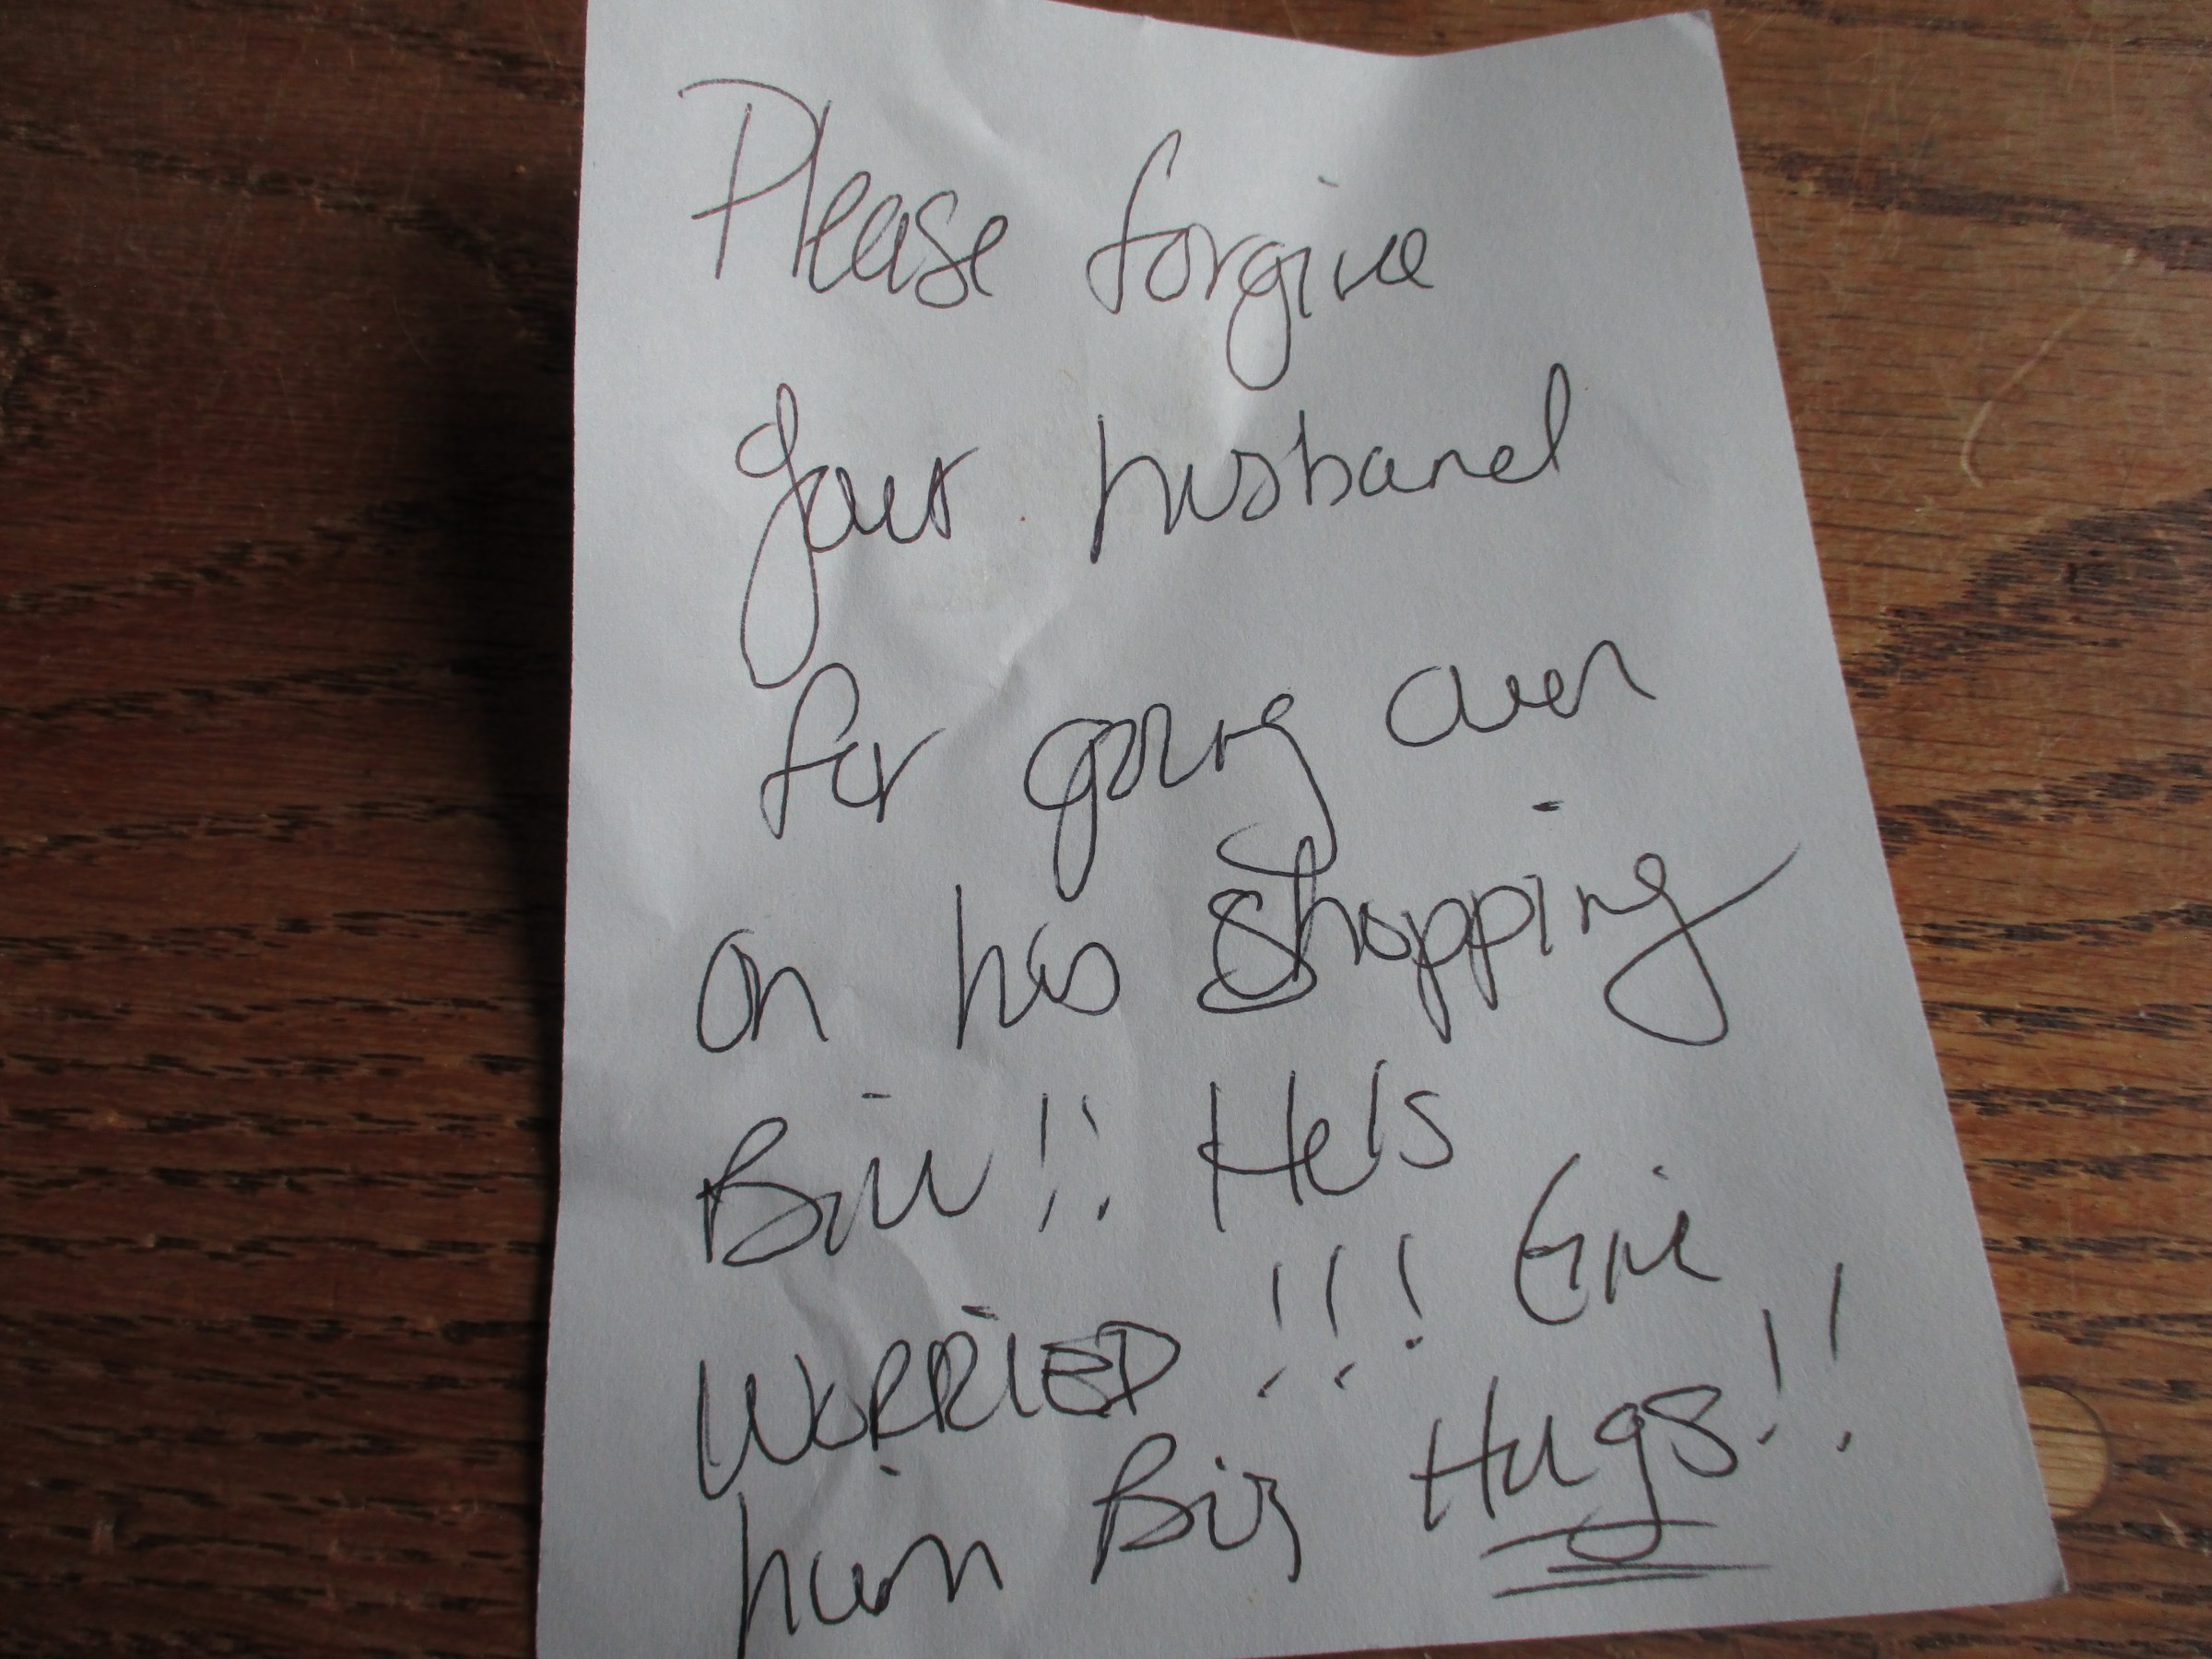 Please forgive
your husband
for going over
on his shopping
Bill!! He's
WORRIED!!! Give
him Big Hugs!!